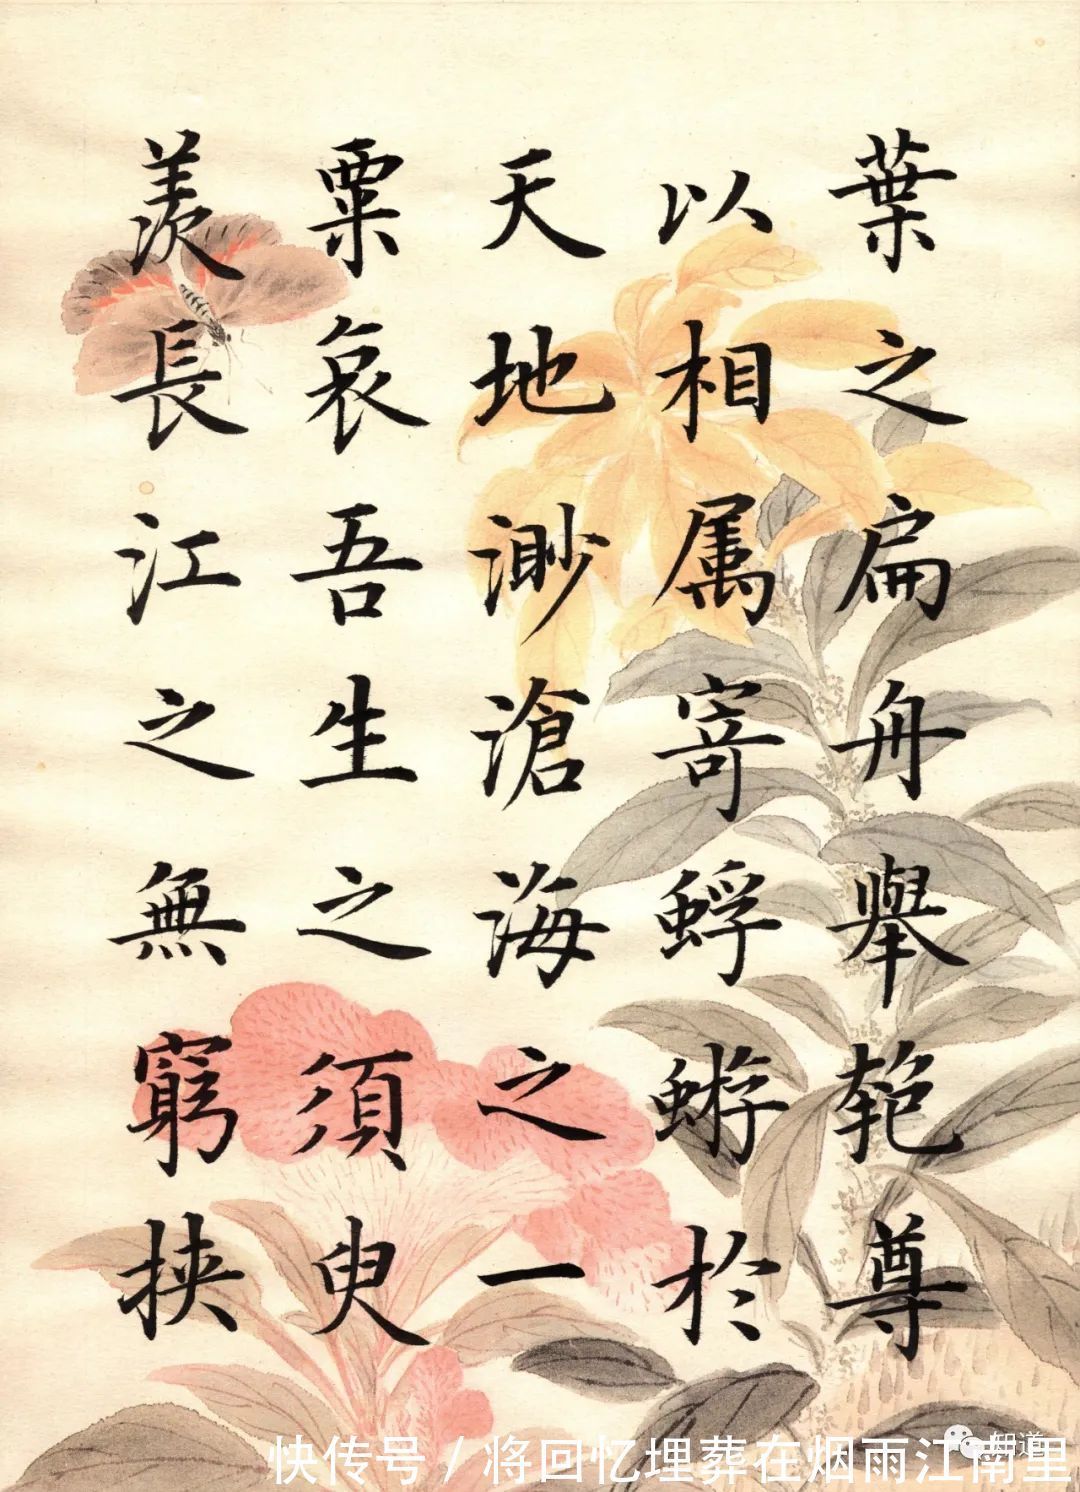 葉之扁舟舉匏尊
以相属寄蜉蝣於
天地渺滄海之一
粟哀吾生之須臾
羨長江之無窮挟
知道
快传号 / 将回忆埋葬在烟雨江南里